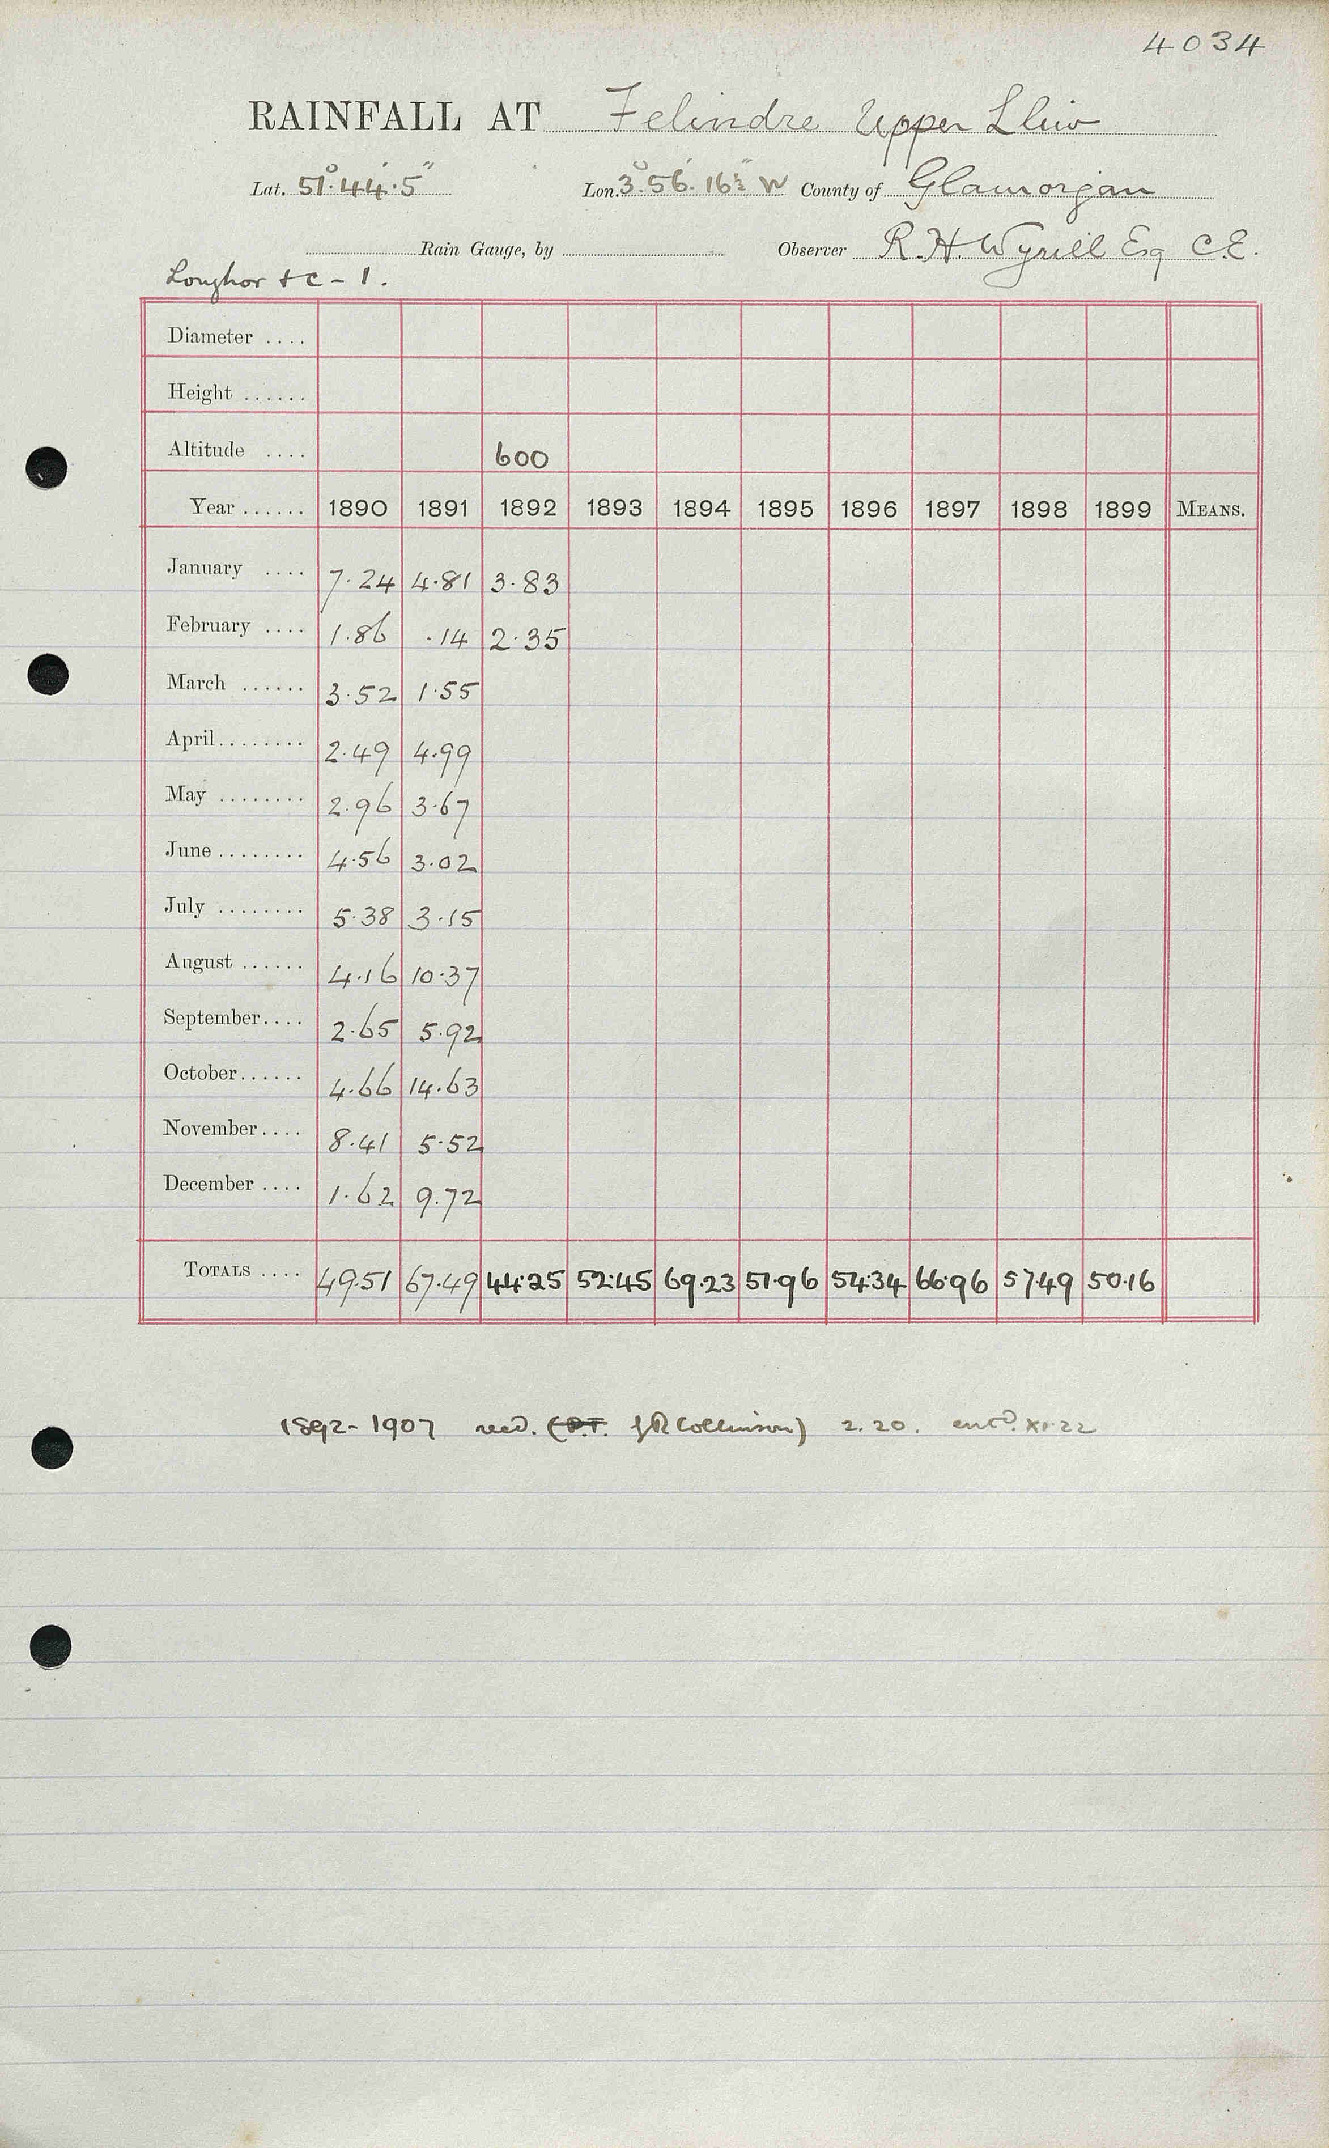 4034
RAINFALL AT Felindre Upper Lliw
Lat. 51°.44'.5" Lon. 3°.56'.16½" W County of Glamorgan
Rain Gauge, by Observer R.H. Wyrill Esq C.E.
Loughor &c - 1.
Diameter ....
Height ......
Altitude .... 600
Year ...... 1890 1891 1892 1893 1894 1895 1896 1897 1898 1899 MEANS.
January .... 7.24 4.81 3.83
February .... 1.86 .14 2.35
March ...... 3.52 1.55
April........ 2.49 4.99
May ........ 2.96 3.67
June ........ 4.56 3.02
July ........ 5.38 3.15
August ...... 4.16 10.37
September.... 2.65 5.92
October...... 4.66 14.63
November.... 8.41 5.52
December .... 1.62 9.72
TOTALS .... 49.51 67.49 44.25 52.45 69.23 51.96 54.34 66.96 57.49 50.16
1892-1907 recd. ( J R Collinson) 2.20. entd. XI.22